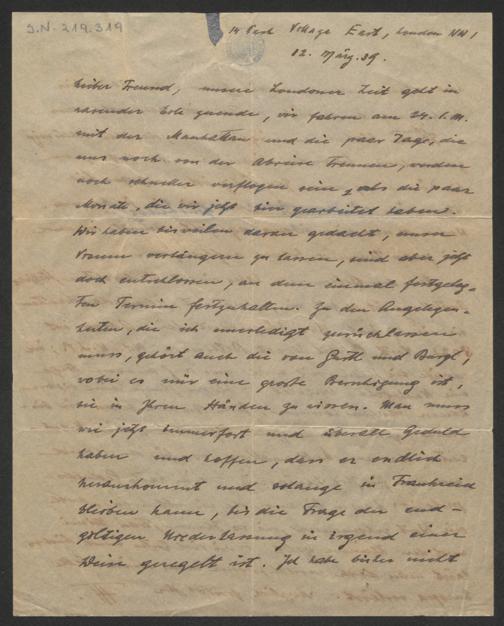 J.N. 219.319
14 Park Village East, London NW 1
22. März 39.
Lieber Freund, unsere Londoner Zeit geht in
rasender Eile zuende, wir fahren am 24. l. M.
mit der Manhattan und die paar Tage, die
uns noch von der Abreise trennen, werden
noch schneller verflogen sein, als die paar
Monate, die wir jetzt hier gearbeitet haben.
Wir haben bisweilen daran gedacht, unser
Visum verlängern zu lassen, sind aber jetzt
doch entschlossen, an dem einmal festgeleg-
ten Termin festzuhalten. Zu den Angelegen-
heiten, die ich unerledigt zurücklassen
muss, gehört auch die von Guth und Burgl,
wobei es mir eine große Beruhigung ist,
sie in Ihren Händen zu wissen. Man muss
wie jetzt immerfort und überall Geduld
haben und hoffen, dass er endlich
herauskommt und solange in Frankreich
bleiben kann, bis die Frage der end-
gültigen Niederlassung in irgend einer
Weise geregelt ist. Ich habe bisher nicht